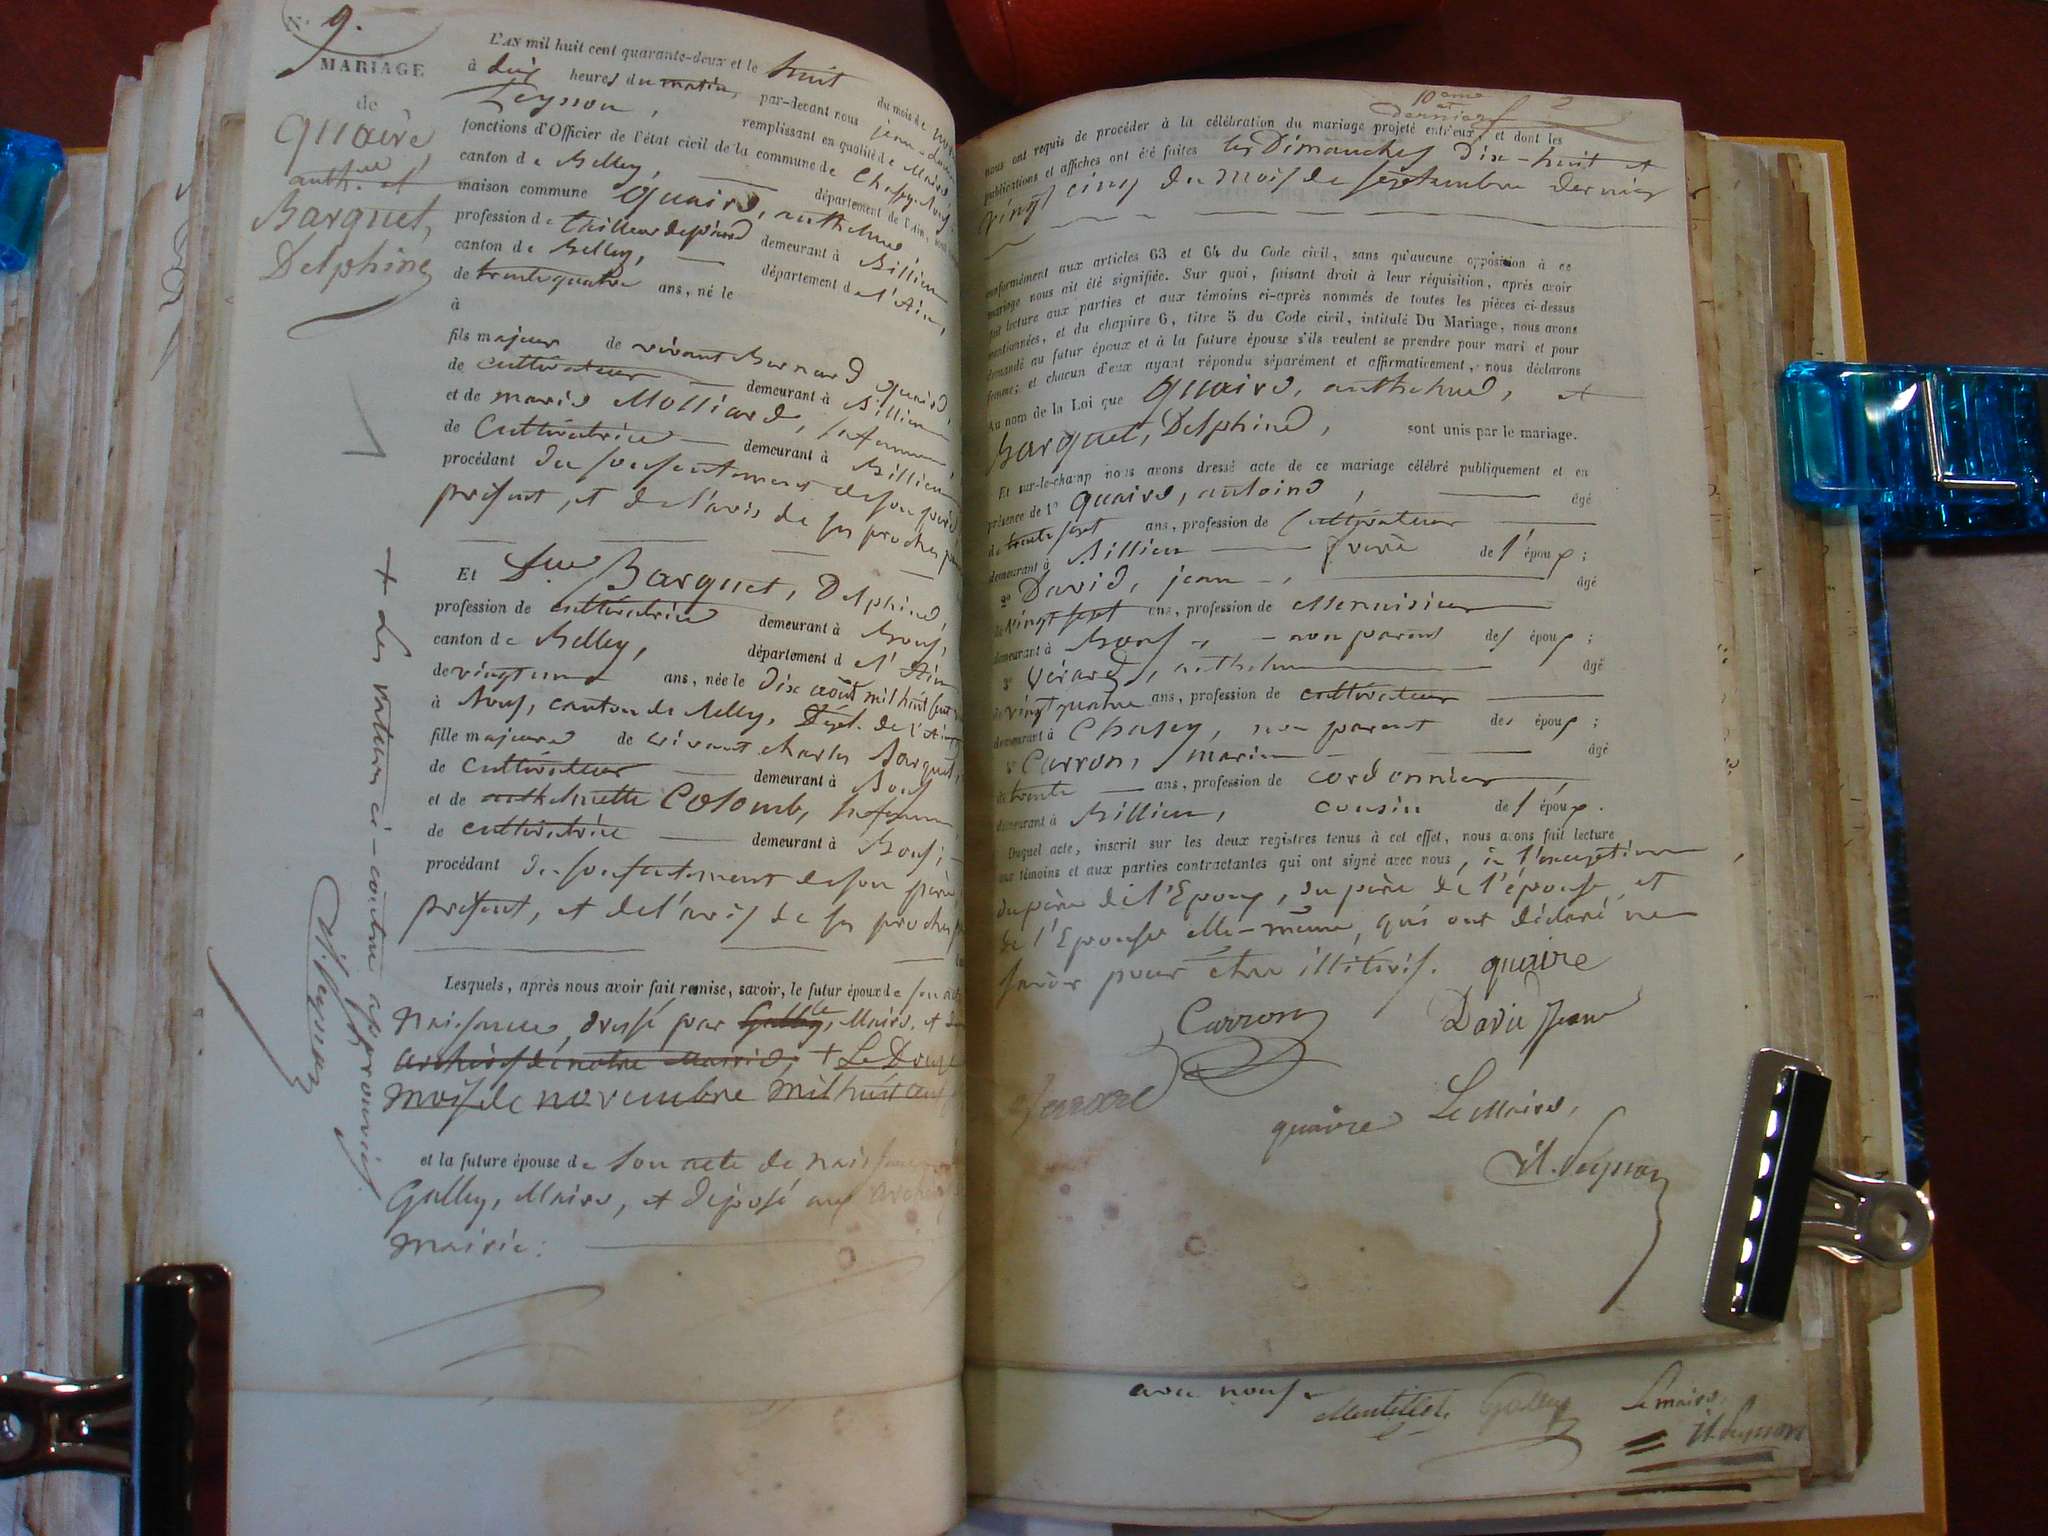 N.º 9.
MARIAGE
de
Quaire,
anth.me et
Barquet,
Delphine
L'AN mil huit cent quarante-deux et le huit du mois de
à dix heures du matin, par-devant nous jean-
Peysson, remplissant en qualité de Maire
fonctions d'Officier de l'état civil de la commune de
canton de Belley, département de l'Ain,
maison commune Quaire, anthelme
profession de tailleur de pierre demeurant à Billieu
canton de Belley, département d l'Ain,
de trente quatre ans, né le
à
fils majeur de vivant Bernard Quaire,
de cultivateur demeurant à Billieu
et de marie Molliard, sa femme,
de Cultivatrice demeurant à Billieu
procédant du consentement de son père
présent, et de l'avis de ses proches
Et Dlle Barquet, Delphine,
profession de cultivatrice demeurant à
canton de Belley, département d l'Ain
de vingt un ans, née le Dix août mil huit cent
à canton de Belley, Dépt. de l'Ain
fille majeure de vivant charles Barquet,
de cultivateur demeurant à
et de anthelmette Colomb, sa femme,
de cultivatrice demeurant à
procédant du consentement de son père
présent, et de l'avis de ses proches
Lesquels, après nous avoir fait remise, savoir, le futur époux de son acte
Naissance, dressé par Maire, et
archives de notre Mairie, + Le Douze
mois de novembre mil huit cent
et la future épouse de Son acte de naissance
Gallay, Maire, et déposé aux archives
mairie:
+ des ratures ci-contre approuvées
Peysson
10eme et dernier 2
nous ont requis de procéder à la célébration du mariage projeté entr'eux, et dont les
publications et affiches ont été faites les Dimanches Dix-huit et
vingt cinq du mois de Septembre dernier
conformément aux articles 63 et 64 du Code civil, sans qu'aucune opposition à ce
mariage nous ait été signifiée. Sur quoi, faisant droit à leur réquisition, après avoir
fait lecture aux parties et aux témoins ci-après nommés de toutes les pièces ci-dessus
mentionnées, et du chapitre 6, titre 5 du Code civil, intitulé Du Mariage, nous avons
demandé au futur époux et à la future épouse s'ils veulent se prendre pour mari et pour
femme; et chacun d'eux ayant répondu séparément et affirmativement, nous déclarons
Au nom de la Loi que Quaire, anthelme, et
Barquet, Delphine, sont unis par le mariage.
Et sur-le-champ nous avons dressé acte de ce mariage célébré publiquement et en
présence de 1º Quaire, antoine, âgé
de trente sept ans, profession de Cultivateur
demeurant à Billieu frère de l'époux;
2º David, jean, âgé
de vingt sept ans, profession de Menuisier
demeurant à non parent des époux;
3º anthelme âgé
de vingt quatre ans, profession de cultivateur
demeurant à Chasey, non parent des époux;
Carron, marin âgé
de trente ans, profession de cordonnier
demeurant à Billieu, cousin de l'époux.
Duquel acte, inscrit sur les deux registres tenus à cet effet, nous avons fait lecture
aux témoins et aux parties contractantes qui ont signé avec nous, à l'exception
du père de l'Epoux, du père de l'épouse, et
de l'Epouse elle-même, qui ont déclaré ne
savoir pour être illitérés. quaire
Carron David Jean
quaire Le Maire,
Peysson
avec nous.
Gallay Le maire,
Peysson